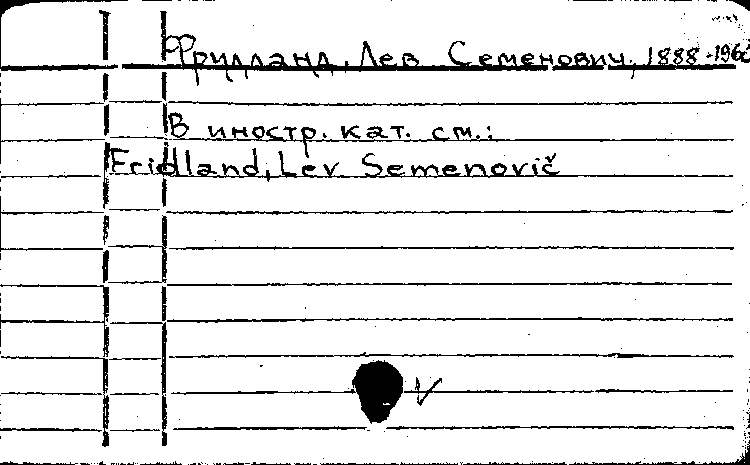 Фридланд, Лев Семенович, 1888-1960
В иностр. кат. см.:
Fridland, Lev Semenovič